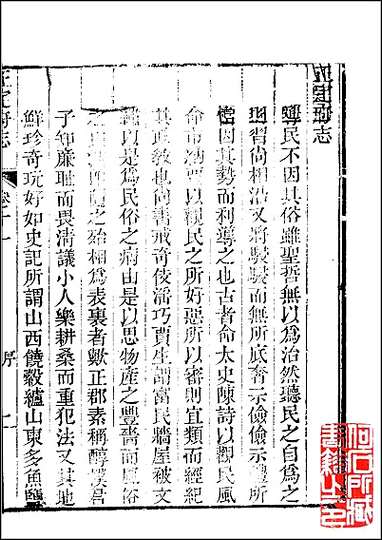 正定府志
導民不因其俗雖聖哲無以爲治然聽民之自爲之
習尚相沿又將駸駸而無所底奢示儉儉示禮所
因其勢而利導之也古者命太史陳詩以觀民風
命市納賈以觀民之所好惡所以審則宜類而經紀
其政教也尚書戒奇伎淫巧賈生謂富民牆屋被文
繡以是爲民俗之病由是以思物產之豐嗇而風俗
之殆相爲表裏者歟正郡素稱醇樸君
子知廉恥而畏清議小人樂耕桑而重犯法又其地
鮮珍奇玩好如史記所謂山西饒穀纑山東多魚鹽
正定府志
卷十一
序
二